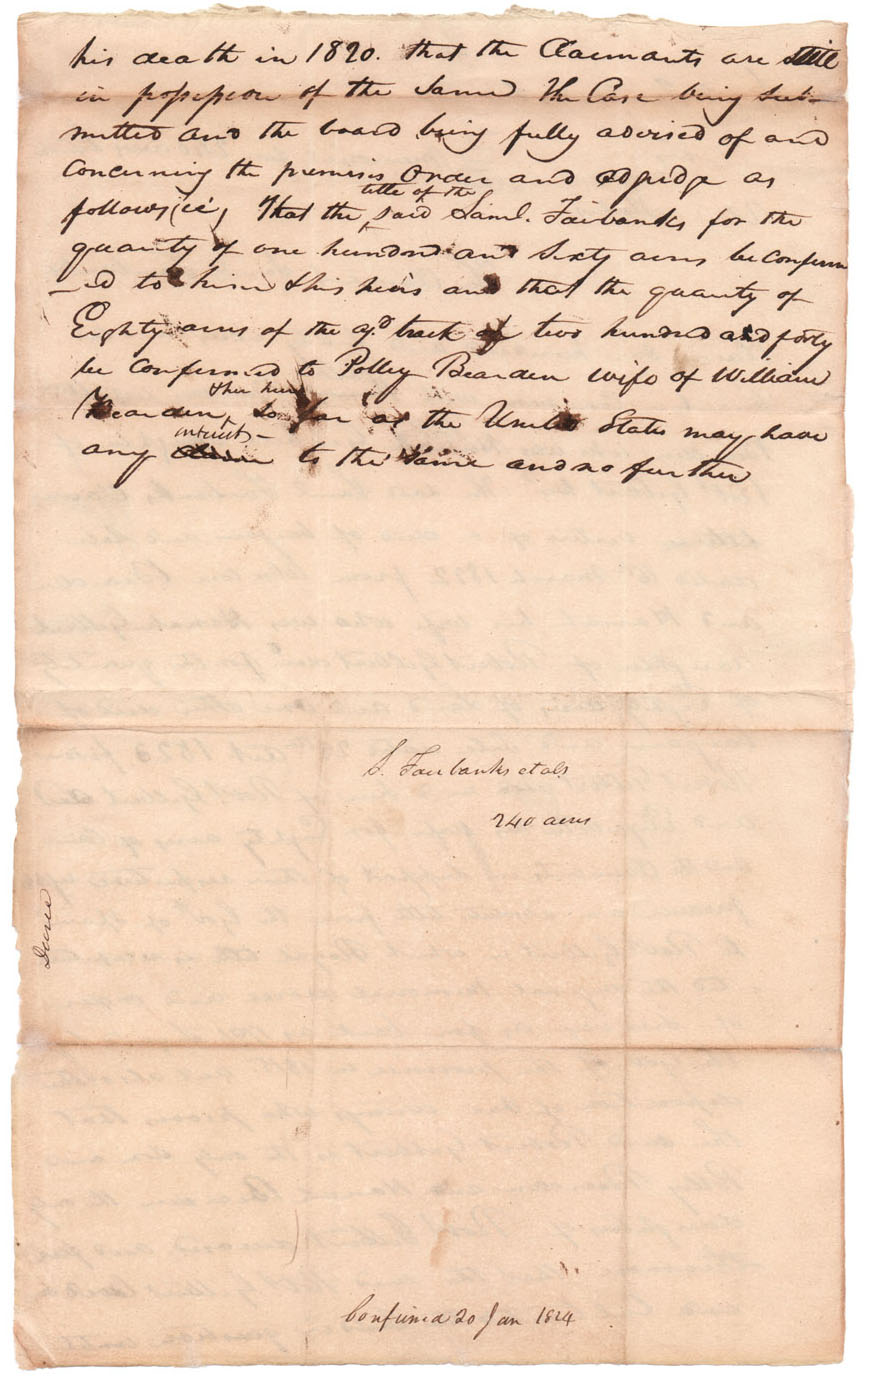 his death in 1820. that the Claimants are still
in possession of the Same The Case being Sub-
mitted and the board being fully advised of and
concerning the premises Order and adjudge as
follows (ie, That the title of the said Saml. Fairbanks for the
quantity of one hundred and Sixty acres be confirm
-ed to him & his heirs and that the quantity of
Eighty acres of the sd. track of two hundred and forty
be confirmed to Polley Bearden wife of William
Bearden, & her heirs so far as the United States may have
any interest to the Same and no further
S. Fairbanks et als
240 acres
Duval
Confirmed 20 Jan 1824